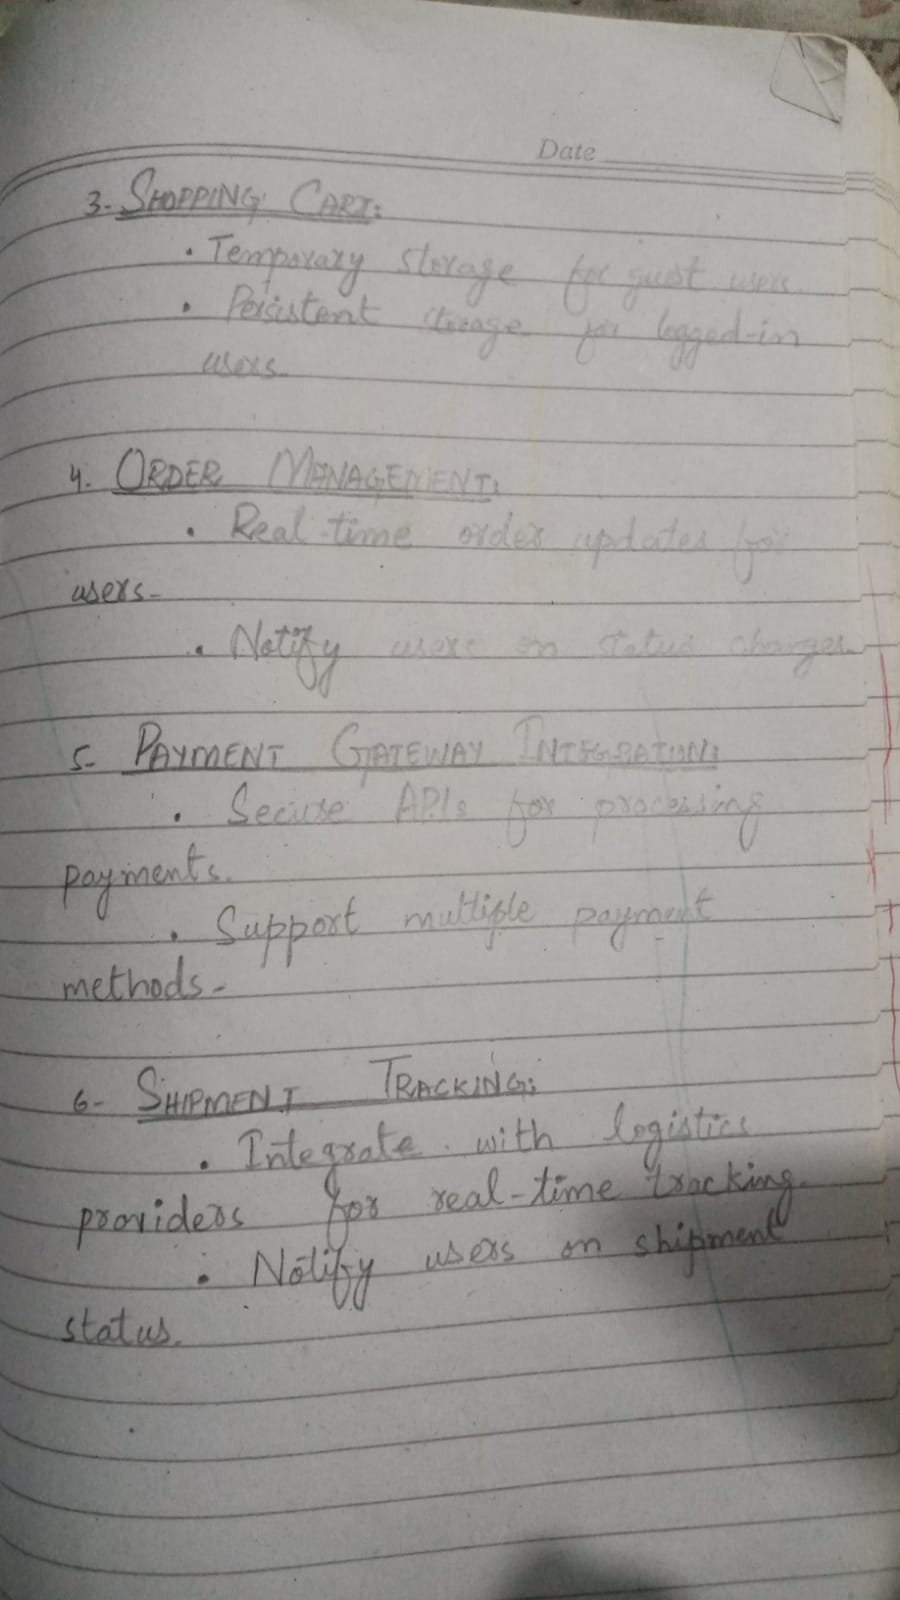 Date
3- SHOPPING CART:
• Temporary storage for guest users.
• Persistent storage for logged-in
users.
4. ORDER MANAGEMENT:
• Real-time order updates for
users.
• Notify users on status changes.
5- PAYMENT GATEWAY INTEGRATION:
• Secure APIs for processing
payments.
• Support multiple payment
methods.
6- SHIPMENT TRACKING:
• Integrate with logistics
providers for real-time tracking.
• Notify users on shipment
status.